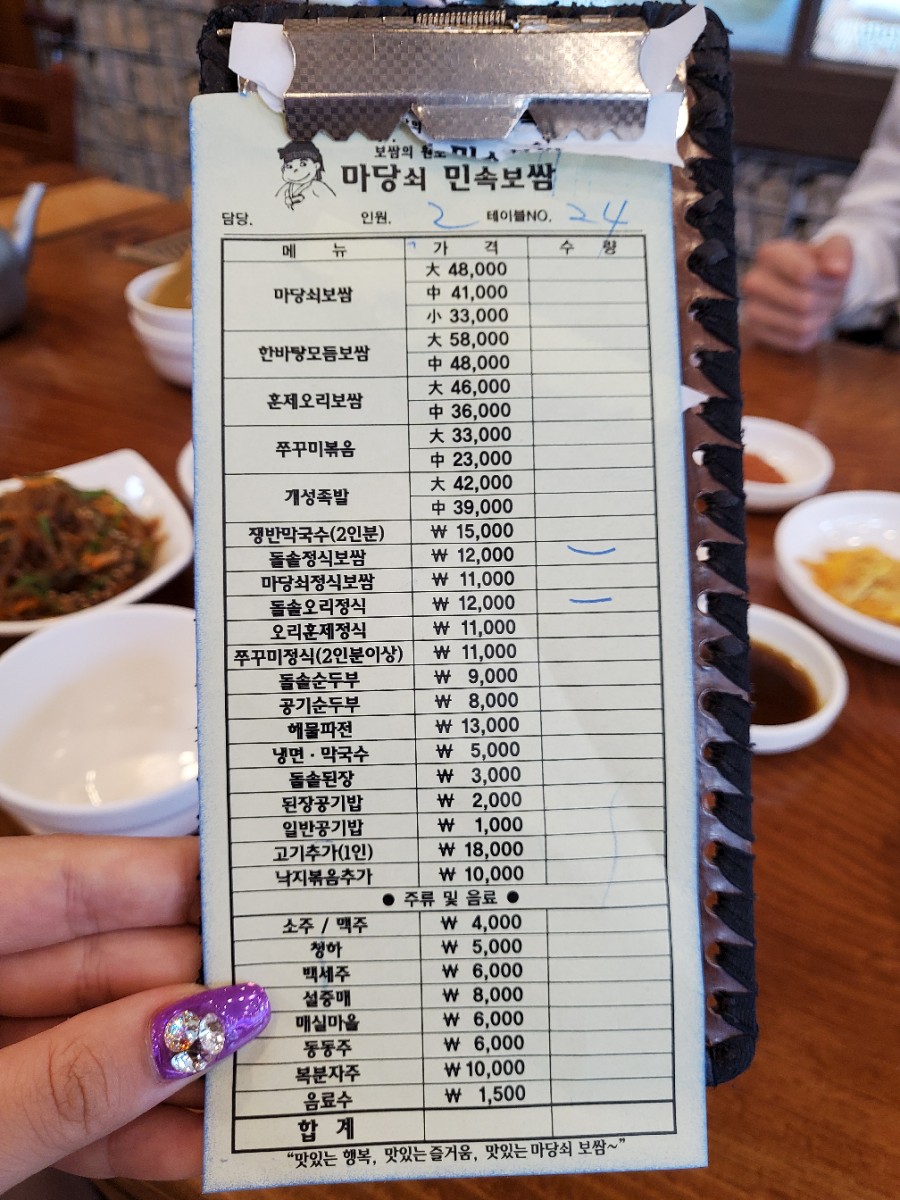 보쌈의 원조
마당쇠 민속보쌈
담당. 인원. 2 테이블NO. 24
메 뉴 가 격 수 량
마당쇠보쌈 大 48,000
中 41,000
小 33,000
한바탕모듬보쌈 大 58,000
中 48,000
훈제오리보쌈 大 46,000
中 36,000
쭈꾸미볶음 大 33,000
中 23,000
개성족발 大 42,000
中 39,000
쟁반막국수(2인분) ₩ 15,000
돌솥정식보쌈 ₩ 12,000 一
마당쇠정식보쌈 ₩ 11,000
돌솥오리정식 ₩ 12,000 一
오리훈제정식 ₩ 11,000
쭈꾸미정식(2인분이상) ₩ 11,000
돌솥순두부 ₩ 9,000
공기순두부 ₩ 8,000
해물파전 ₩ 13,000
냉면 · 막국수 ₩ 5,000
돌솥된장 ₩ 3,000
된장공기밥 ₩ 2,000
일반공기밥 ₩ 1,000
고기추가(1인) ₩ 18,000
낙지볶음추가 ₩ 10,000
● 주류 및 음료 ●
소주 / 맥주 ₩ 4,000
청하 ₩ 5,000
백세주 ₩ 6,000
설중매 ₩ 8,000
매실마을 ₩ 6,000
동동주 ₩ 6,000
복분자주 ₩ 10,000
음료수 ₩ 1,500
합 계
“맛있는 행복, 맛있는 즐거움, 맛있는 마당쇠 보쌈~”